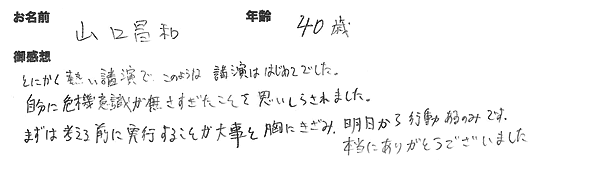 お名前 山口昌和 年齢 40歳
御感想
とにかく熱い講演で、このような講演ははじめてでした。
自分に危機意識が無さすぎたことを思いしらされました。
まずは考える前に実行することが大事と胸にきざみ、明日から行動あるのみです。
本当にありがとうございました